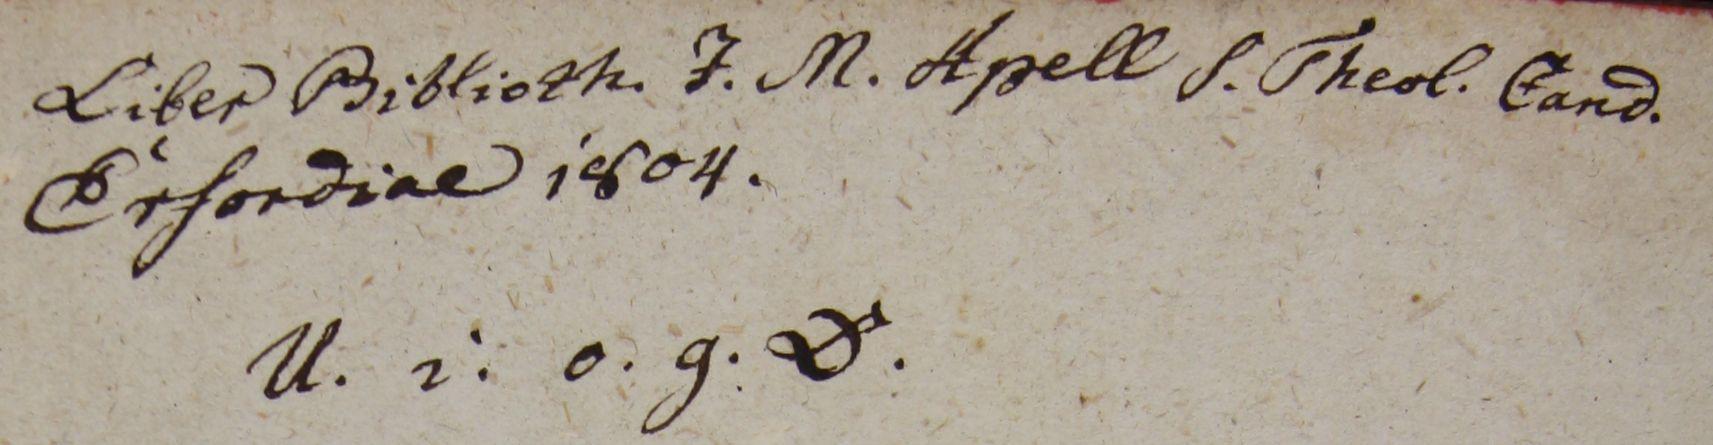 Liber Biblioth. J. M. Apell S. Theol. Cand.
Erfordiae 1804.
U. i. o. g. D.